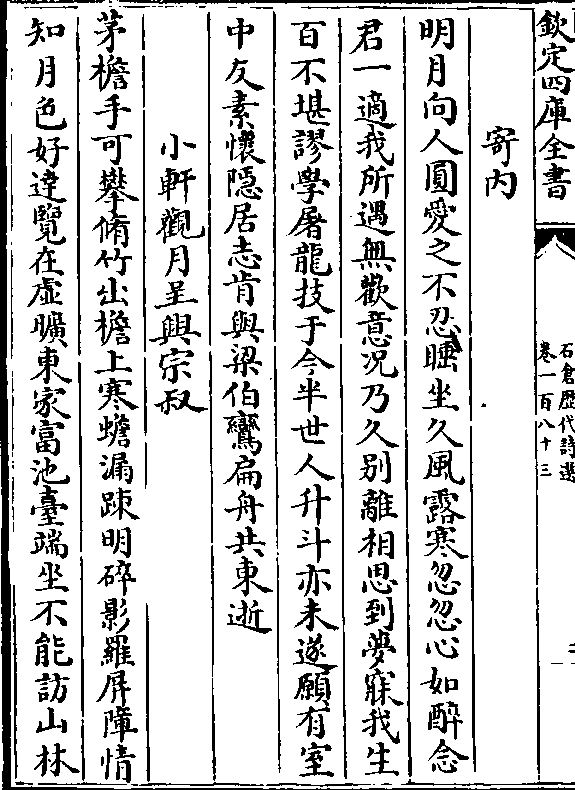 欽定四庫全書
石倉歴代詩選
卷一百八十三
寄内
明月向人圓愛之不忍睡坐久風露寒忽忽心如醉念
君一適我所遇無歡意况乃久别離相思到夢寐我生
百不堪謬學屠龍技于今半世人升斗亦未遂願有室
中友素懷隱居志肯與梁伯鸞扁舟共東逝
小軒觀月呈興宗叔
茅檐手可攀脩竹出檐上寒蟾漏踈明碎影羅屏障情
知月色好逹覽在虚曠東家富池臺端坐不能訪山林